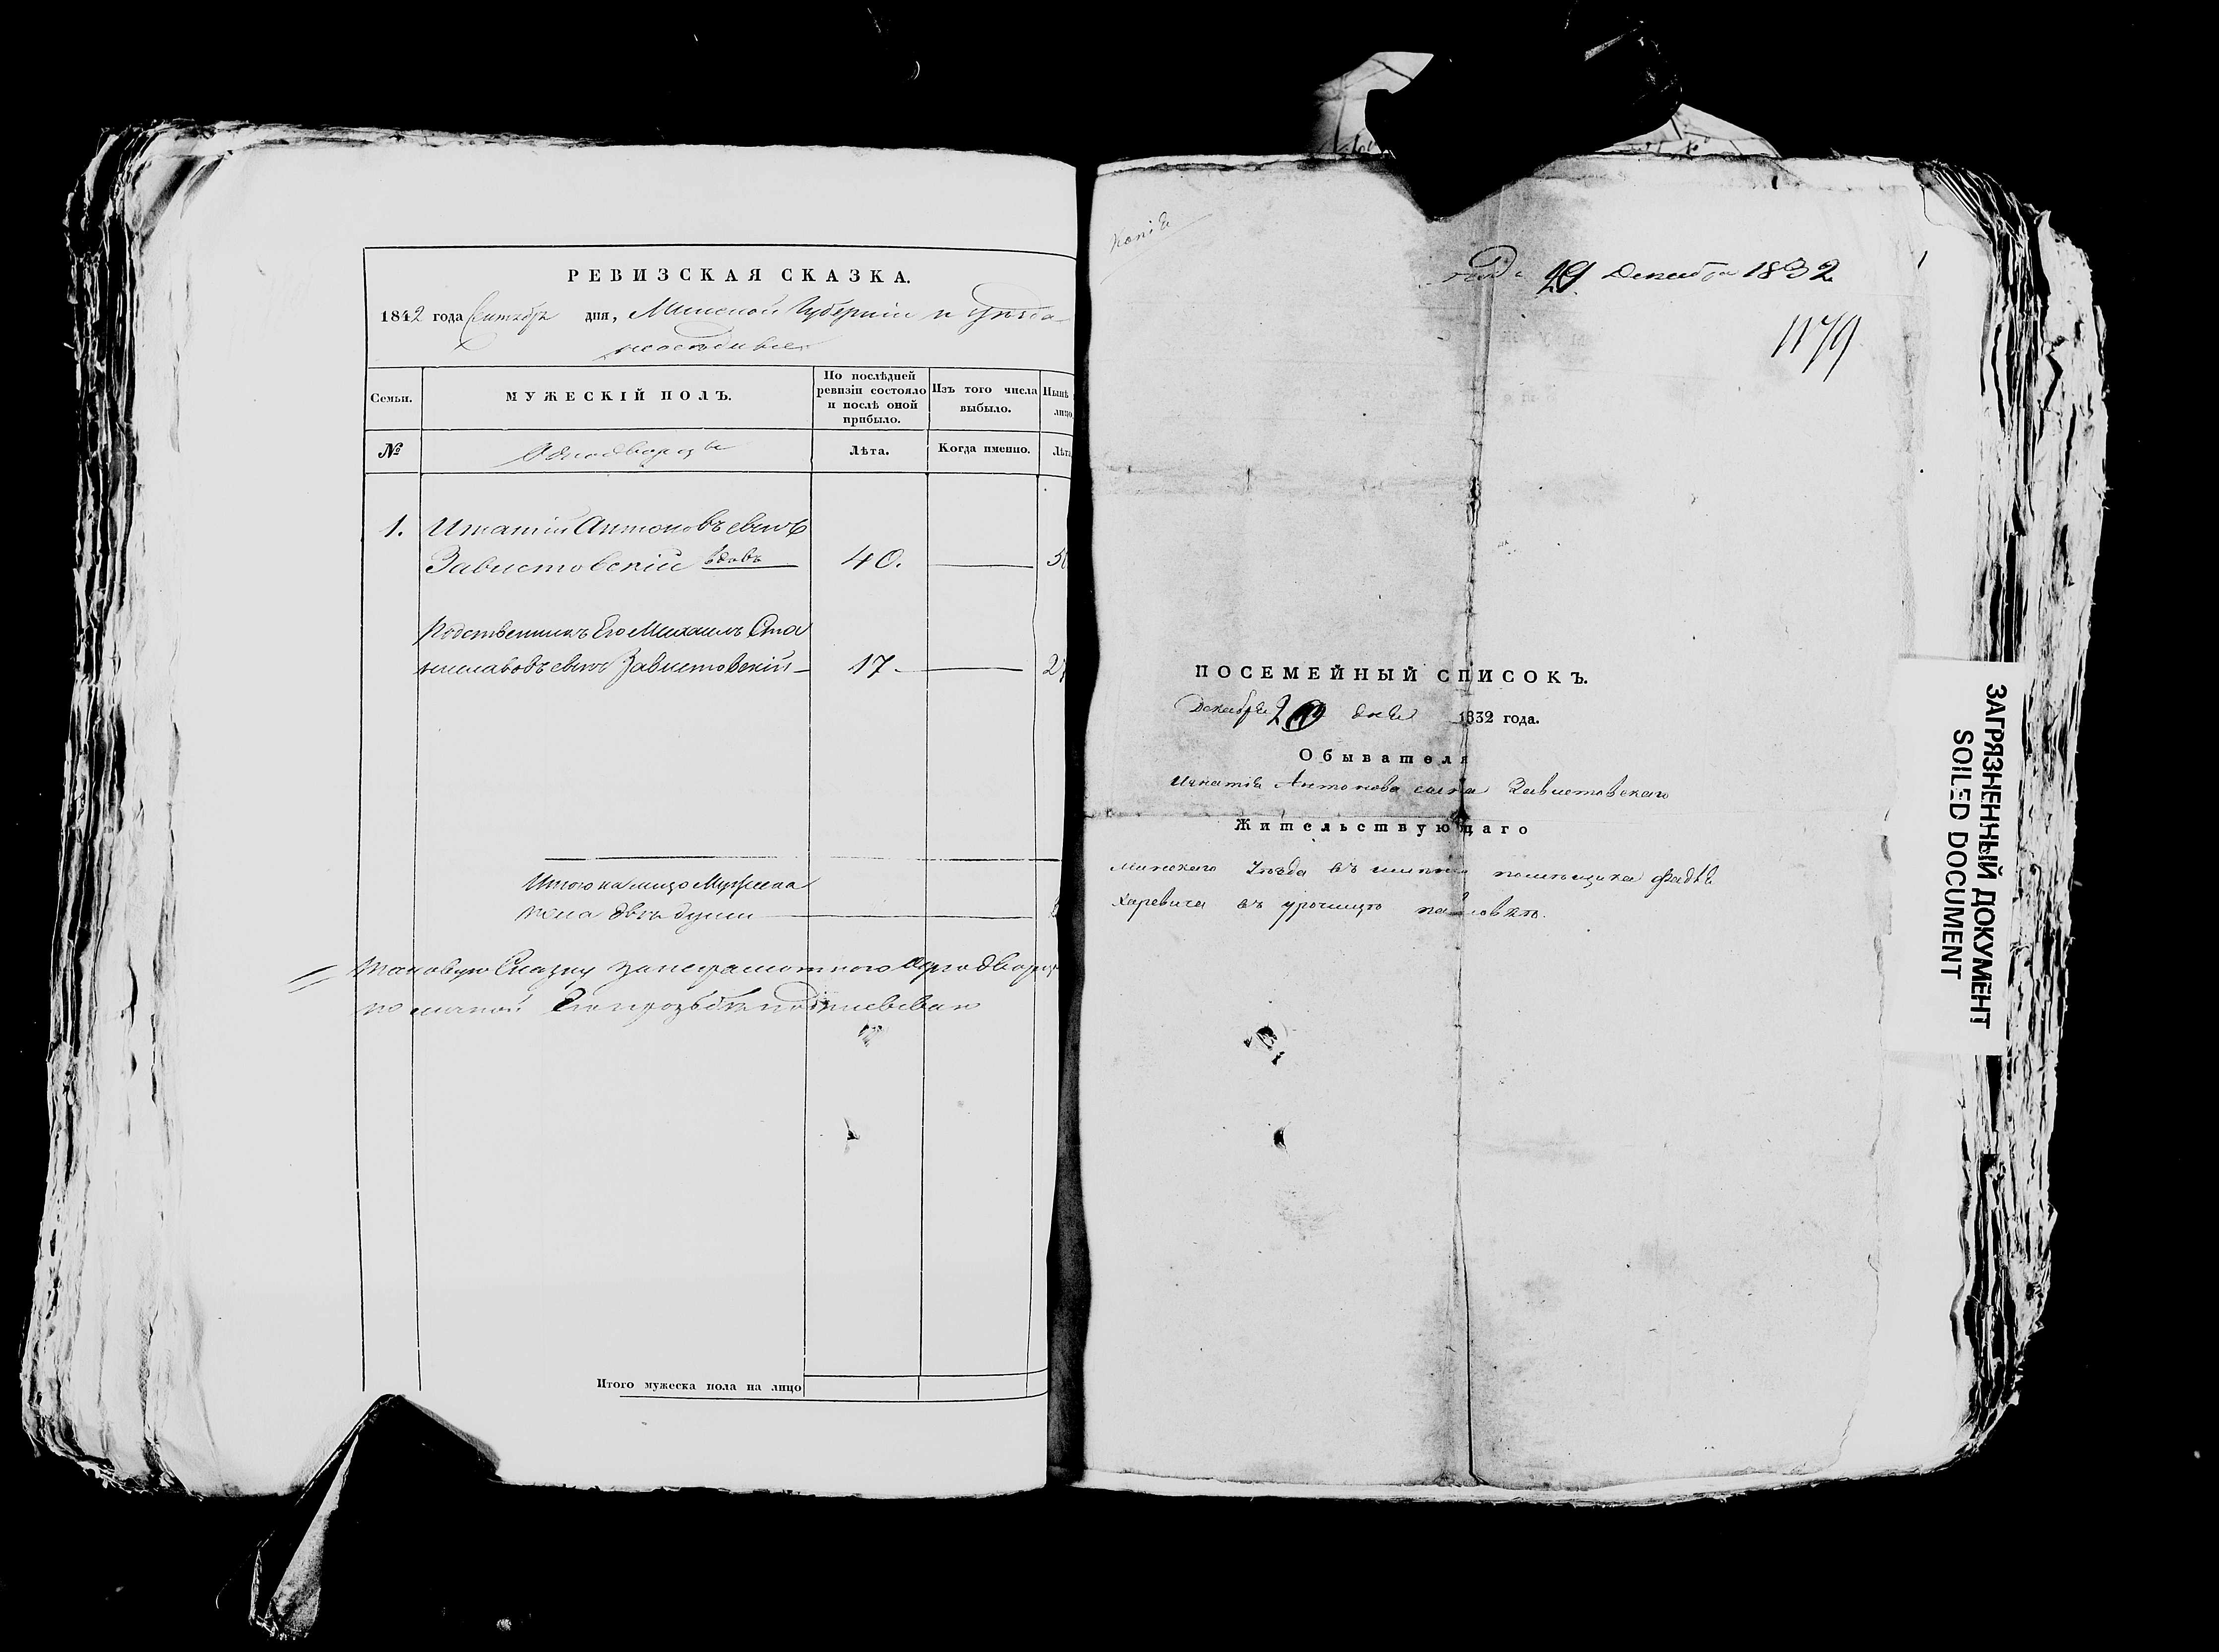 РЕВИЗСКАЯ СКАЗКА.
1842 года Сентябр дня, Минской Губернии и уѣзда
Семьи.
МУЖЕСКІЙ ПОЛЪ.
По послѣдней
ревизіи состояло
и послѣ оной
прибыло.
Изъ того числа
выбыло.
Нынѣ
лицо
№
Однодворцы
Лѣта.
Когда именно.
Лѣта
1. Игнатій Антоновъ сынъ
Завистовскій вдовъ 40. 50
Родственникъ Его Михаилъ Ста
ниславовъ сынъ Завистовскій 17 27
Итого на лицо Мужеска
пола двѣ души
Таковую Сказку
Итого мужеска пола на лицо
Копія
29 Декабря 1832
1179
ПОСЕМЕЙНЫЙ СПИСОКЪ.
Декабря 29 дня 1832 года.
Обывателя
Игнатія Антонова сына Завистовскаго
Жительствующаго
Минскаго Уѣзда въ имѣніи помѣщика Фадѣя
Харевича въ урочищѣ
ЗАГРЯЗНЕННЫЙ ДОКУМЕНТ
SOILED DOCUMENT